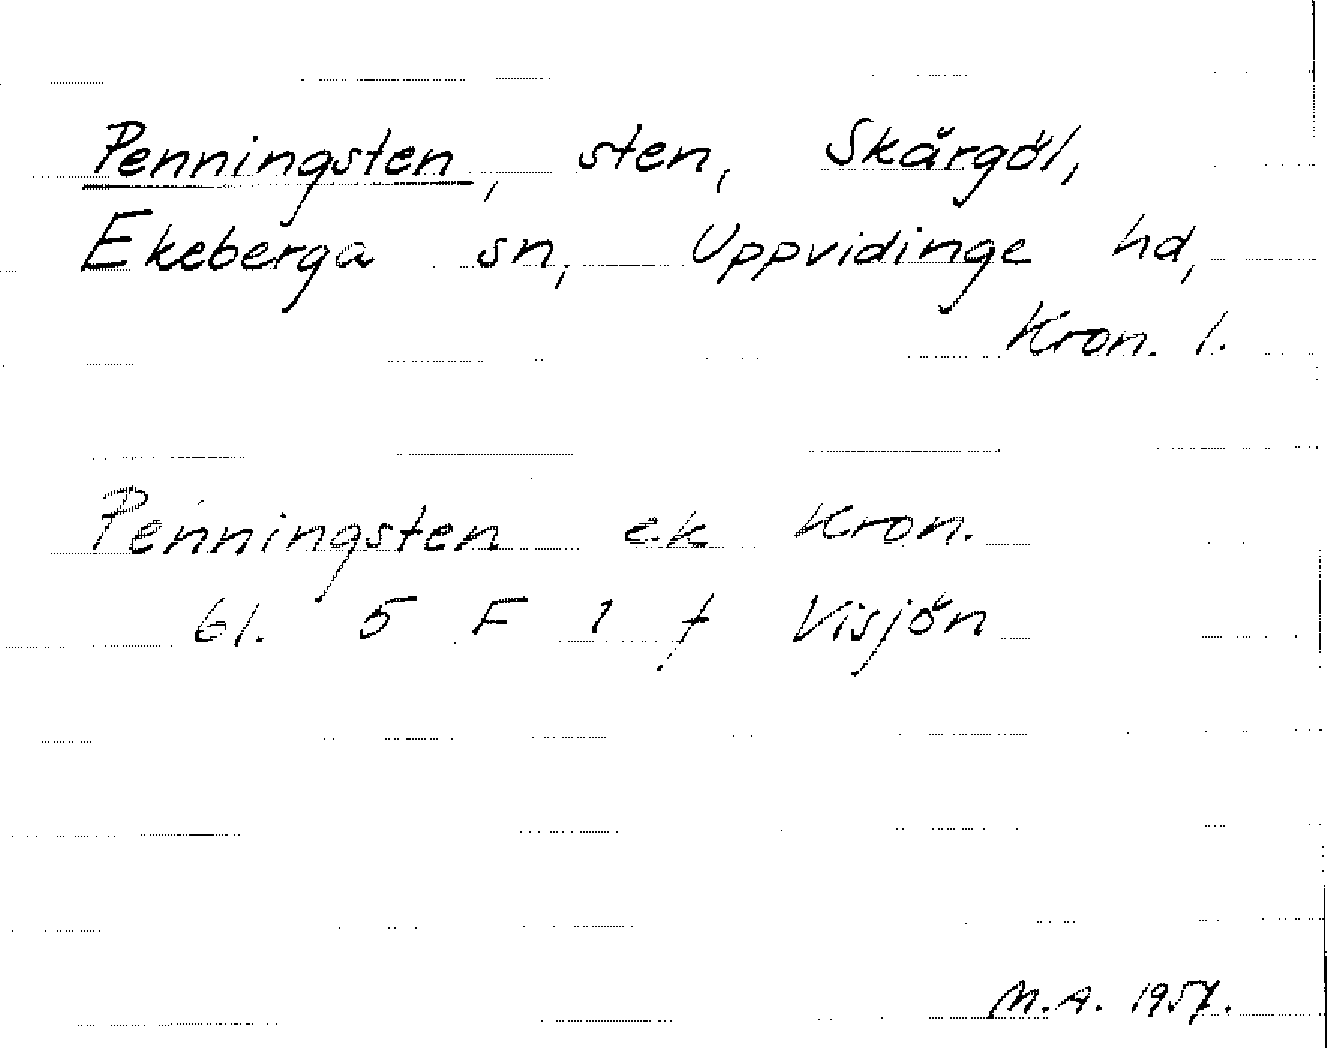 Penningsten, sten, Skårgöl,
Ekeberga sn, Uppvidinge hd,
Kron. l.
Penningsten ek Kron.
bl. 5 F 1 f Visjön
M.A. 1957.